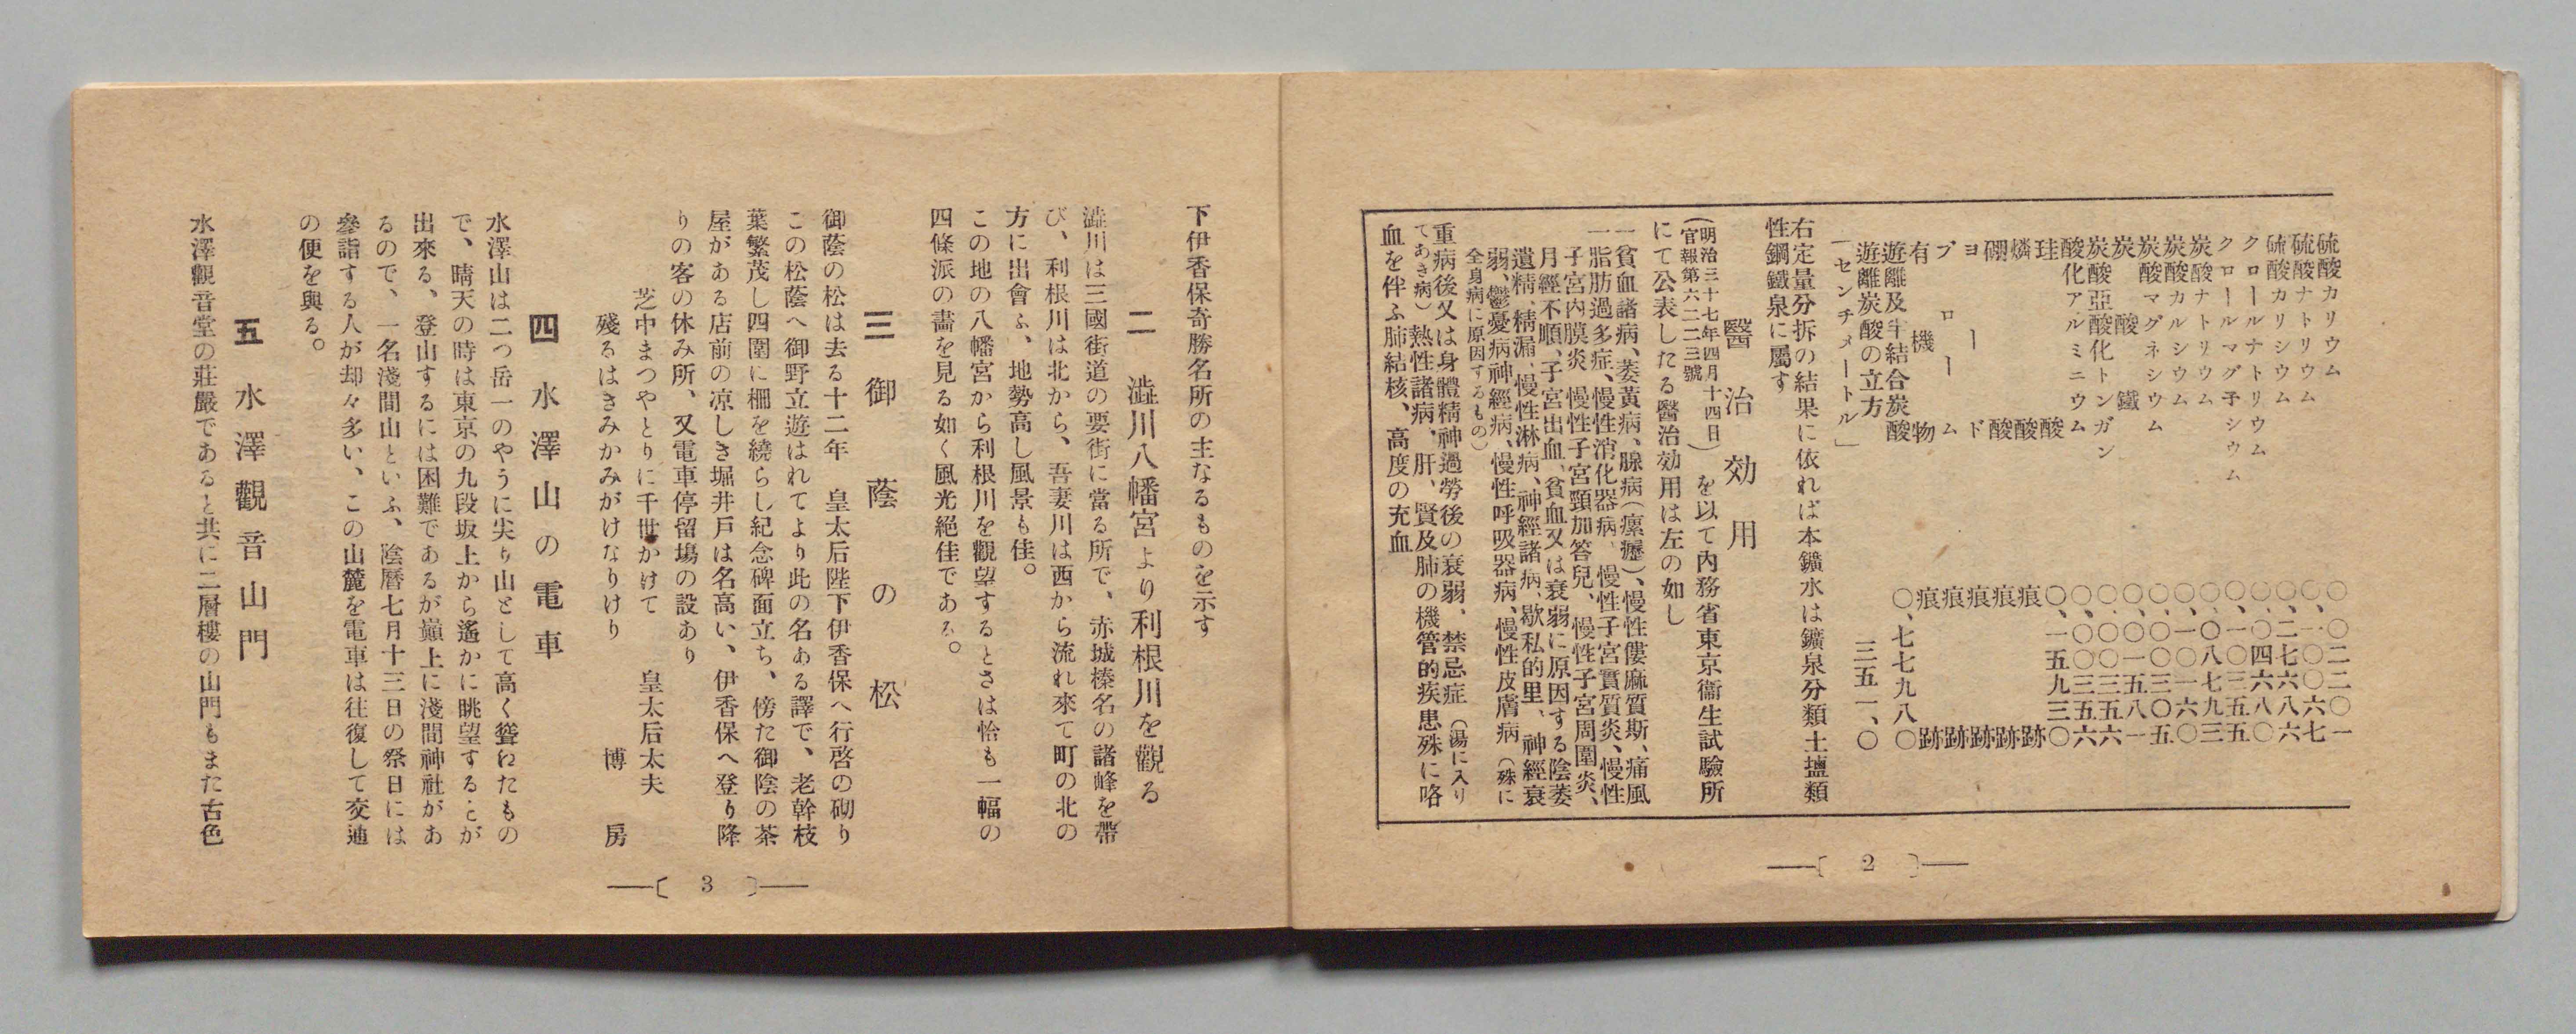 硫酸カリウム 〇、〇二二〇一
硫酸ナトリウム 〇、一〇〇六七
硫酸カリシウム 〇、二七六八六
クロールナトリウム 〇、〇四六八〇
クロールマグ子シウム 〇、一〇三五五
炭酸ナトリウム 〇、〇八七九三
炭酸カルシウム 〇、一〇一六〇
炭酸マグネシウム 〇、〇〇三〇五
炭酸鐵 〇、〇一五八一
炭酸亞酸化トンガン 〇、〇〇三五六
酸化アルミニウム 〇、〇〇三五六
珪酸 〇、一五九三〇
燐酸 痕跡
硼酸 痕跡
ヨード 痕跡
ブローム 痕跡
有機物 痕跡
遊離及半結合炭酸 〇、七七九八〇
遊離炭酸の立方
「センチメートル」 三五一、〇
右定量分拆の結果に依れば本鑛水は鑛泉分類土塩類
性鋼鐵泉に屬す
醫治効用
(明治三十七年四月十四日
官報第六二二三號)を以て内務省東京衞生試驗所
にて公表したる醫治効用は左の如し
一貧血諸病、萎黃病、腺病(瘰癧)、慢性僂麻質斯、痛風
一脂肪過多症、慢性消化器病、慢性子宮實質炎、慢性
子宮内膜炎 慢性子宮頸加答兒、慢性子宮周圍炎、
月經不順、子宮出血、貧血又は衰弱に原因する陰萎
遺精、精漏、慢性淋病、神經諸病、歇私的里、神經衰
弱、鬱憂病神經病、慢性呼吸器病、慢性皮膚病(殊に
全身病に原因するもの)
重病後又は身體精神過勞後の衰弱、禁忌症(湯に入り
てあき病)熱性諸病、肝、賢及肺の機管的疾患殊に咯
血を伴ふ肺結核、高度の充血
2
下伊香保奇勝名所の主なるものを示す
二 澁川八幡宮より利根川を觀る
澁川は三國街道の要街に當る所で、赤城榛名の諸峰を帶
び、利根川は北から、吾妻川は西から流れ來て町の北の
方に出會ふ、地勢高し風景も佳。
この地の八幡宮から利根川を觀望するとさは恰も一幅の
四條派の畵を見る如く風光絕佳である。
三 御蔭の松
御蔭の松は去る十二年 皇太后陛下伊香保へ行啓の砌り
この松蔭へ御野立遊はれてより此の名ある譯で、老幹枝
葉繁茂し四圍に柵を繞らし紀念碑面立ち、傍た御陰の茶
屋がある店前の凉しき堀井戸は名高い、伊香保へ登り降
りの客の休み所、又電車停留塲の設あり
芝中まつやとりに千世かけて 皇太后太夫
殘るはきみかみがけなりけり 博房
四 水澤山の電車
水澤山は二つ岳一のやうに尖り山として高く聳ねたもの
で、晴天の時は東京の九段坂上から遙かに眺望することが
出來る、登山するには困難であるが巓上に淺間神社があ
るので、一名淺間山といふ、陰暦七月十三日の祭日には
參詣する人が却々多い、この山麓を電車は往復して交通
の便を與る。
五 水澤觀音山門
水澤觀音堂の莊嚴であると共に二層樓の山門もまた古色
3